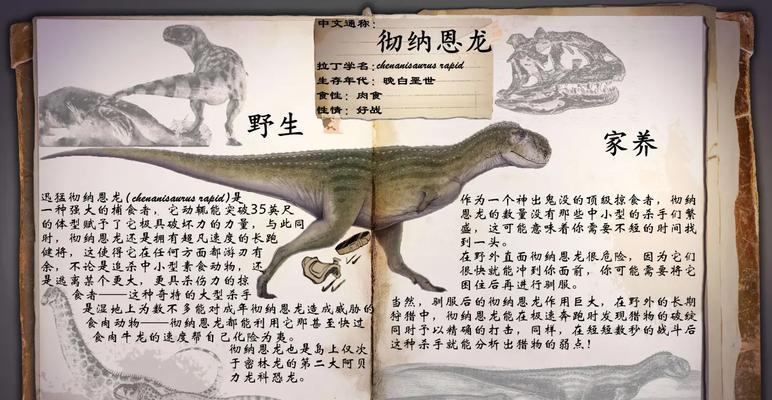 中文通称:
彻纳恩龙
拉丁学名:chenanisaurus rapid
生存年代: 晚白垩世
食性: 肉食
性情: 好战
野生
迅猛彻纳恩龙(chenanisaurus rapid)是
一种强大的捕食者，它动辄能突破35英尺
的体型赋予了它极具破坏力的力量，与此同
时，彻纳恩龙还是拥有超凡速度的长跑
健将，这使得它在任何方面都游刃有
余，不论是追杀中小型素食动物，还
是逃离某个更大，更具杀伤力的掠
食者——这种奇特的大型杀手
是湿地上为数不多能对成年彻纳恩龙造成威胁的
食肉动物——彻纳恩龙都能利用它那甚至快过
食肉牛龙的速度帮自己化险为夷。
彻纳恩龙也是岛上仅次
于密林龙的第二大阿贝
力龙科恐龙。
家养
作为一个神出鬼没的顶级掠食者，彻纳
恩龙的数量没有那些中小型的杀手们繁
盛，这可能意味着你需要不短的时间找
到一头。
在野外直面彻纳恩龙很危险，因为它们
很快就能冲到你面前，你可能需要将它
困住后再进行驯服。
当然，驯服后的彻纳恩龙作用巨大，在野外的长期
狩猎中，彻纳恩龙能在极速奔跑时发现猎物的破绽
同时予以精确的打击，同样，在短短数秒的战斗后
这种杀手就能分析出猎物的弱点!